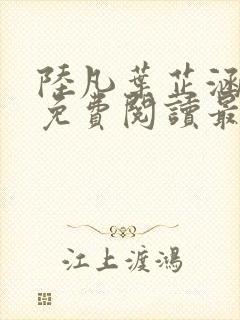 陸凡葉芷涵
免費閱讀最
江上渡鴻